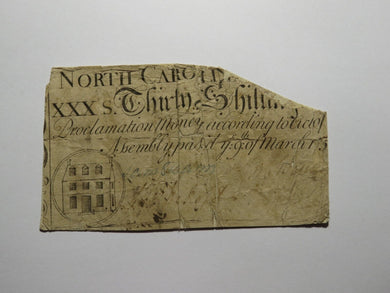 NORTH CAROLI
XXX S. Thirty Shilling
Proclamation Money according to Act of
Assembly pass'd ye 9th of March 175